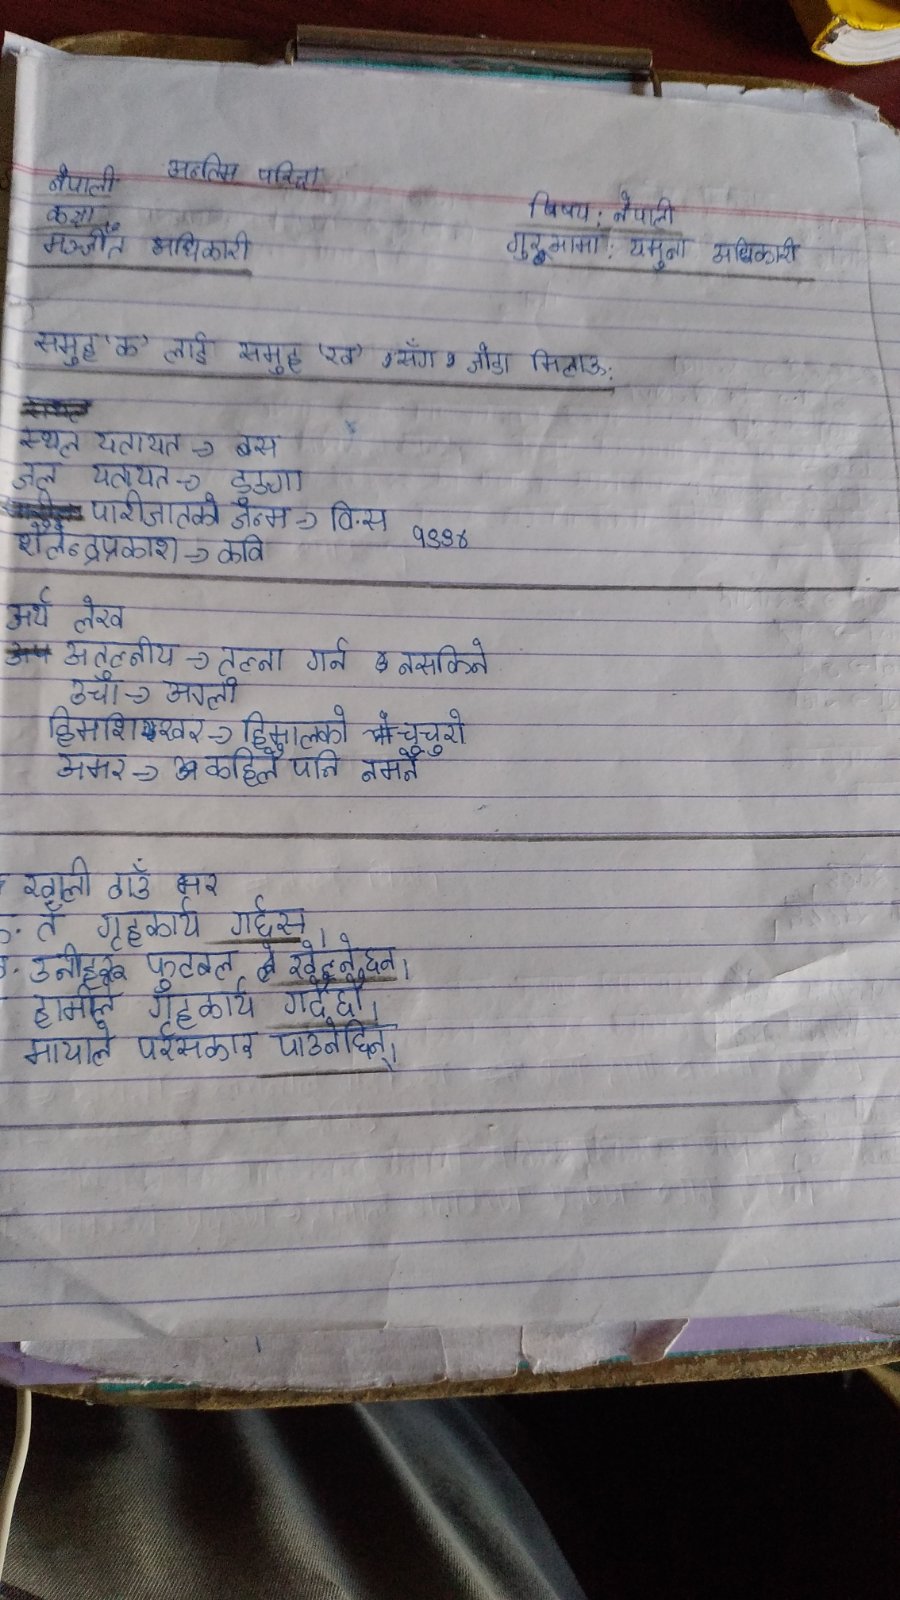 अन्तिम परिक्षा
नेपाली
कक्षा
विषय: नेपाली
मञ्जीत अधिकारी
गुरूमामा: यमुना अधिकारी
समुह 'क' लाई समुह 'ख' सँग जोडा मिलाऊ:
स्थल यतायत → बस
जल यतायत → डुङगा
पारीजातको जन्म → वि.स १९९४
शैलेन्द्रप्रकाश → कवि
अर्थ लेख
अतुलनीय → तुलना गर्न नसकिने
उचाँ → अग्लो
हिमशिखर → हिमालको चुचुरो
अमर → कहिले पनि नमर्ने
खाली ठाउँ भर
तँ गृहकार्य गर्दछस्।
उनीहरू फुटबल खेल्नेछन।
हामीले गृहकार्य गर्देछौं।
मायाले पुरसकार पाउनेछिन्।